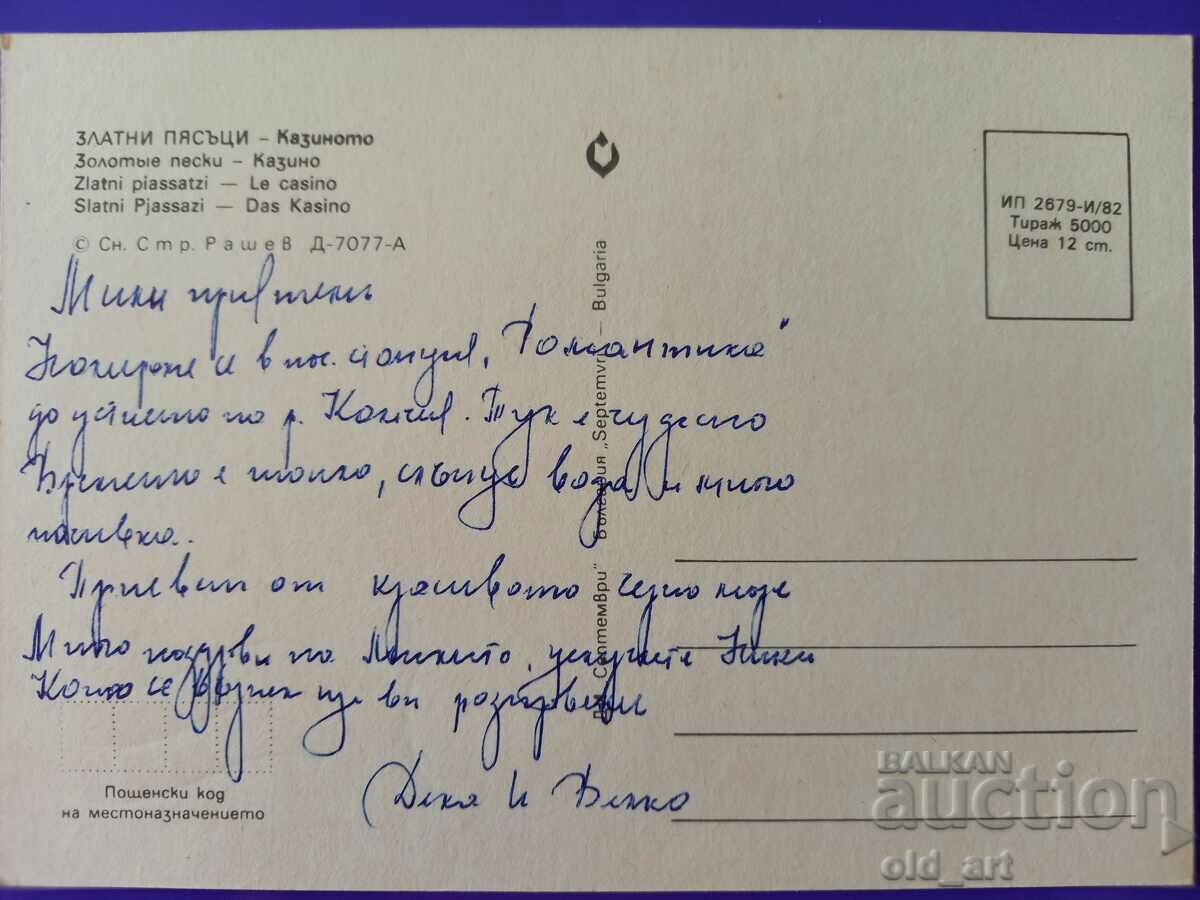 ЗЛАТНИ ПЯСЪЦИ – Казиното
Золотые пески – Казино
Zlatni piassatzi — Le casino
Slatni Pjassazi — Das Kasino
© Сн. Стр. Рашев Д-7077-А
ИП 2679-И/82
Тираж 5000
Цена 12 ст.
"Септември" България „Septemvri" — Bulgaria
Мили приятели
в „Романтика"
до устието на р. Камчия. Тук е чудесно
Времето е топло, слънце вода и
почивка.
Привет от красивото черно море
Много поздрави на
Които се ще ви
и Венко
Пощенски код
на местоназначението
BALKAN
auction
old_art